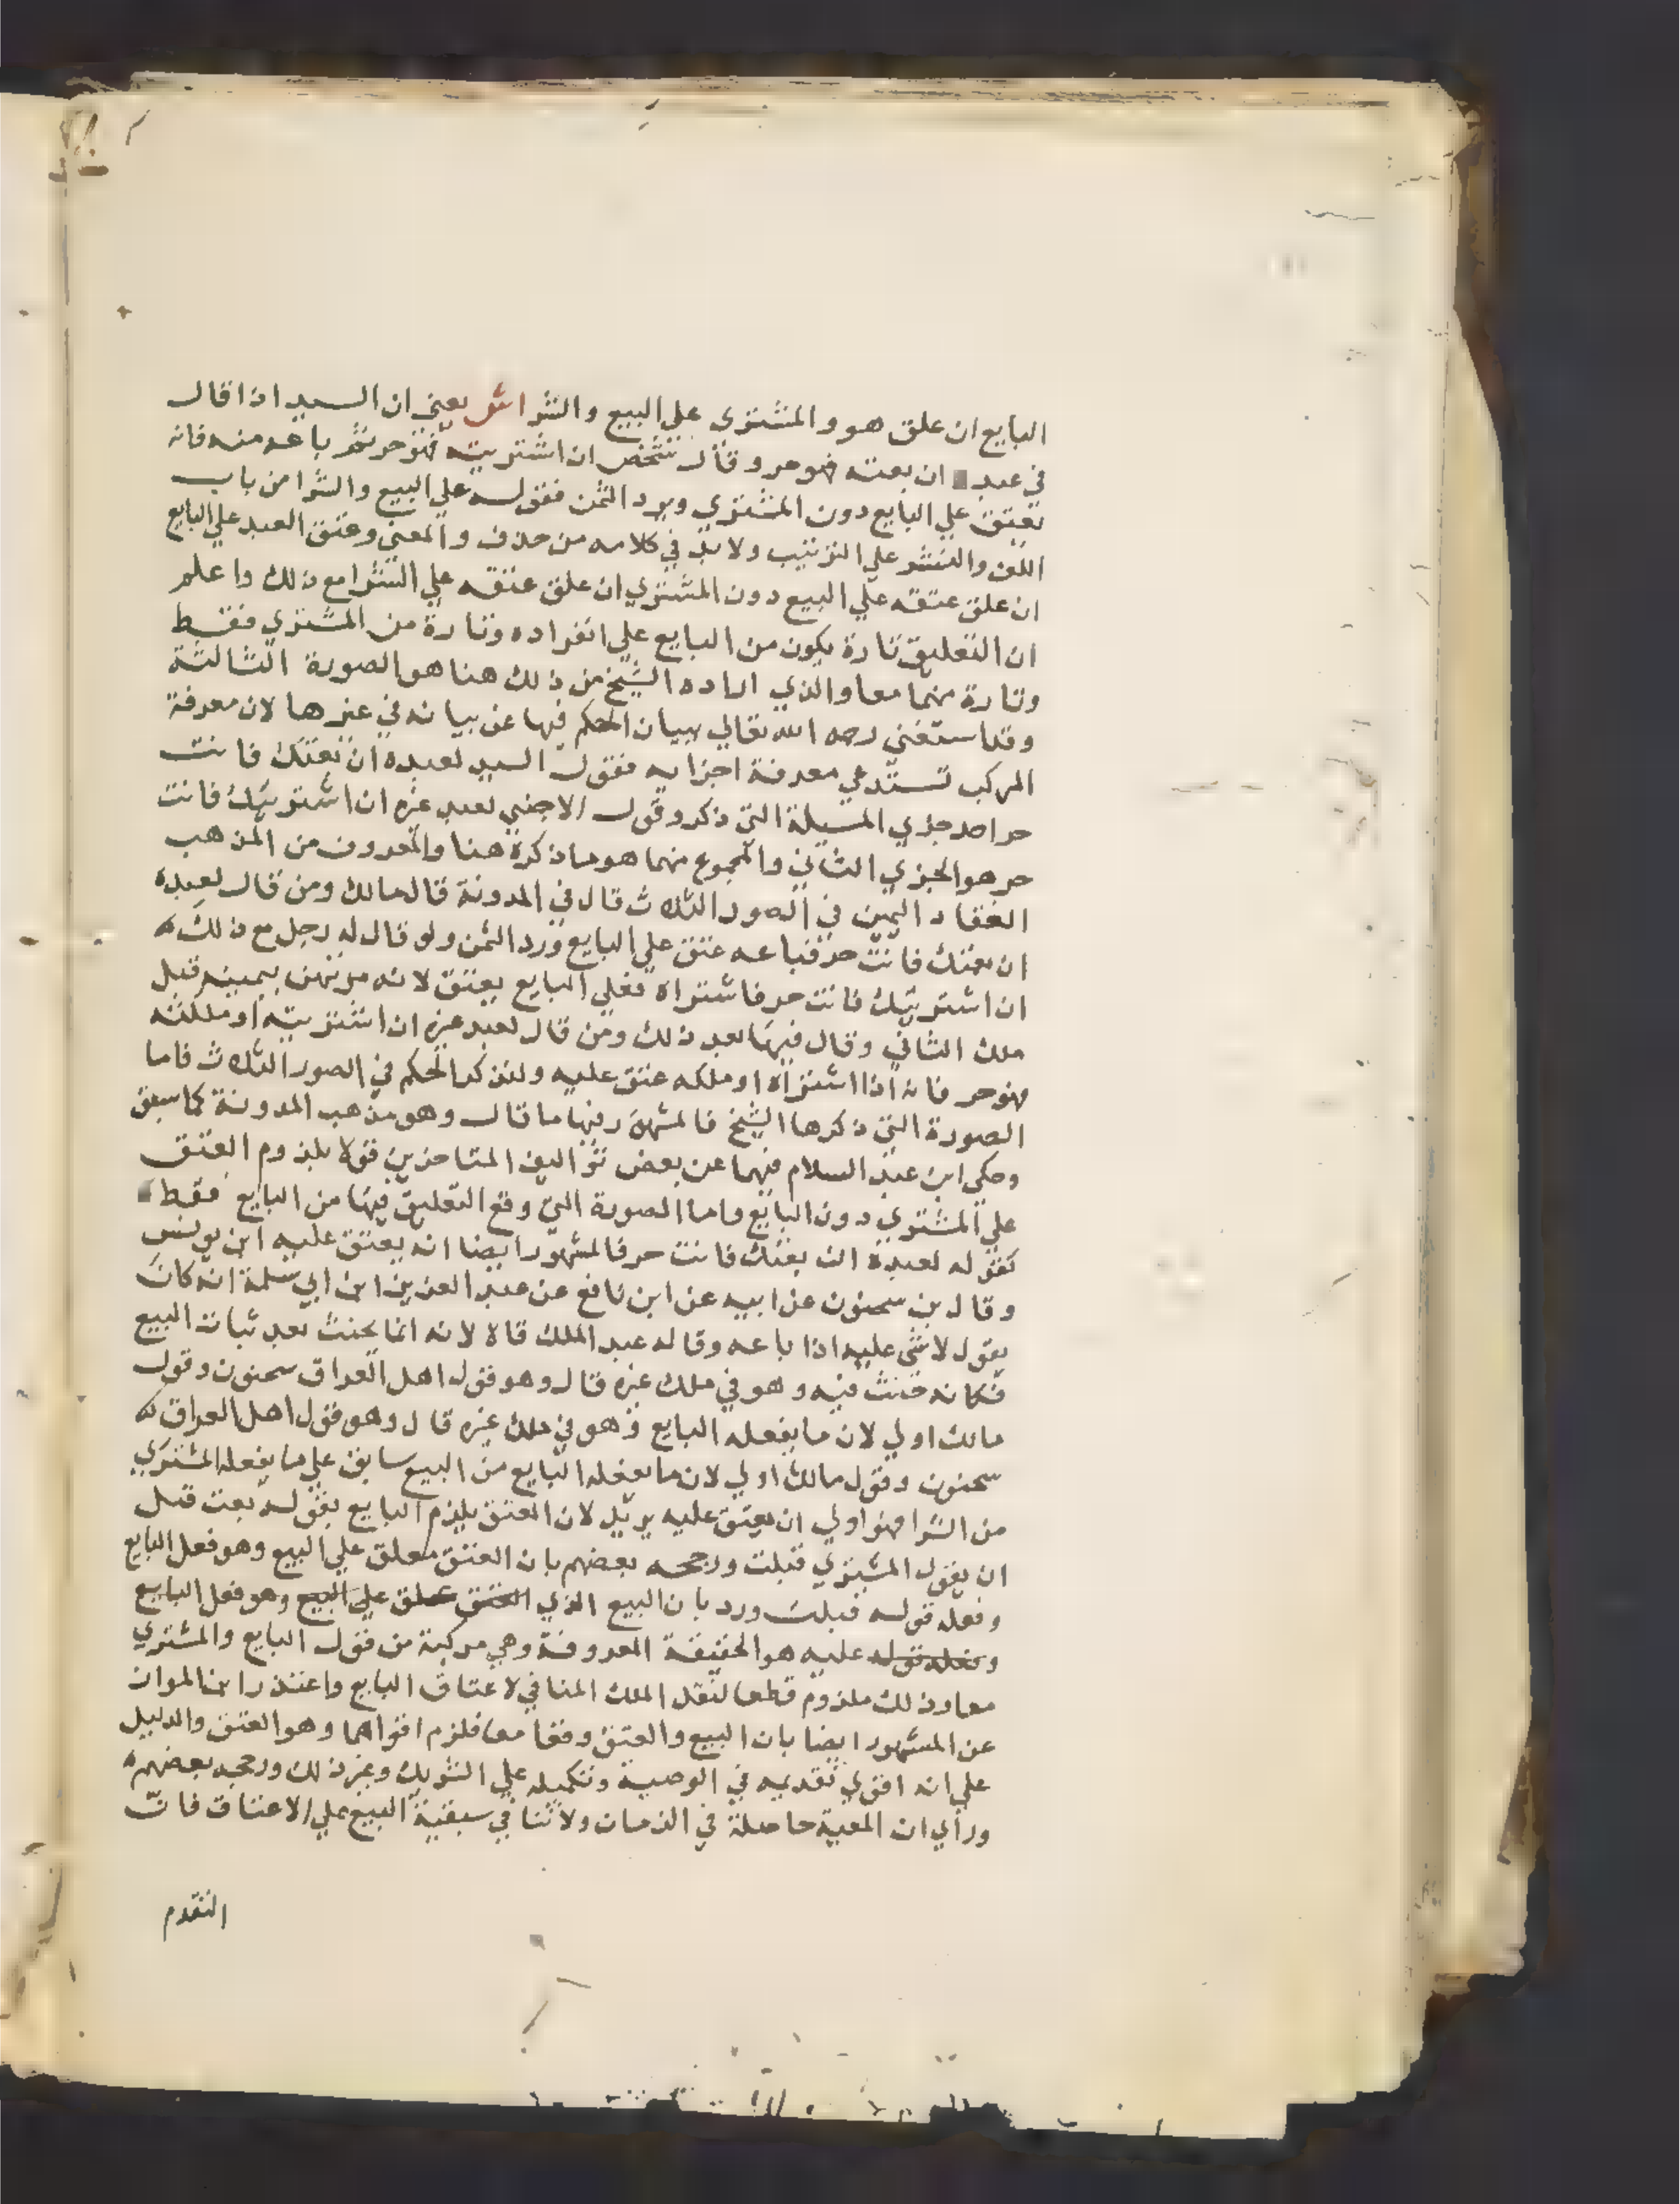 البايع ان علق هو والمشترى على البيع والشرا ش يعني ان السيد اذا قال
في عبد ان بعته فهو حر وقال شخص ان اشتريته فهو حر ثم باعه منه فانه
يعتق علي البايع دون المشتري ويرد الثمن فقوله علي البيع والشرا من باب
اللف والنشر علي الترتيب ولا بد في كلامه من حذف والمعني وعتق العبد علي البايع
ان علق عتقه علي البيع دون المشتري ان علق عتقه علي الشرا مع ذلك واعلم
ان التعليق تارة يكون من البايع علي انفراده وتارة من المشتري فقط
وتارة منهما معا والذي اراده الشيخ من ذلك هنا هو الصورة الثالثة
وقد استغني رحمه الله تعالي ببيان الحكم فيها عن بيانه في غيرها لان معرفة
المركب تستدعي معرفة اجزايه فقول السيد لعبده ان بعتك فانت
حر احد جزي المسيلة التي ذكر وقول الاجنبي لعبد غيره ان اشتريتك فانت
حر هو الجزي الثاني والمجموع منهما هو ما ذكره هنا والمعروف من المذهب
انعقاد اليمين في الصور الثلاث قال في المدونة قال مالك ومن قال لعبده
ان بعتك فانت حر فباعه عتق علي البايع ورد الثمن ولو قال له رجل مع ذلك
ان اشتريتك فانت حر فاشتراه فعلي البايع يعتق لانه مرتهن بيمينه قبل
ملك الثاني وقال فيها بعد ذلك ومن قال لعبد غيره ان اشتريته او ملكته
فهو حر فانه اذا اشتراه او ملكه عتق عليه ولنذكر الحكم في الصور الثلاث فاما
الصورة التي ذكرها الشيخ فالمشهور فيها ما قال وهو مذهب المدونة كما سبق
وحكي ابن عبد السلام فيها عن بعض تواليف المتاخرين قولا بلزوم العتق
علي المشتري دون البايع واما الصورة التي وقع التعليق فيها من البايع فقط
كقوله لعبده ان بعتك فانت حر فالمشهور ايضا انه يعتق عليه ابن يونس
وقال بن سحنون عن ابيه عن ابن نافع عن عبد العزيز ابن ابي سلمة انه كان
يقول لا شي عليه اذا باعه وقاله عبد الملك قاه لانه انما يحنث بعد ثبات البيع
فكانه حنث فيه وهو في ملك غيره قال وهو قول اهل العراق سحنون وقول
مالك اولي لان ما يفعله البايع وهو في ملك غيره قال وهو قول اهل العراق
سحنون وقول مالك اولي لان ما يفعله البايع من البيع سابق علي ما يفعله المشتري
من الشرا فهو اولي ان يعتق عليه يريد لان العتق يلزم البايع بقوله بعت قبل
ان يقول المشتري قبلت ورجحه بعضهم بان العتق معلق علي البيع وهو فعل البايع
وفعله قوله قبلت ورد بان البيع الذي العتق عملق علي البيع وهو فعل البايع
وفعله قوله عليه هو الحقيقة المعروفة وهي مركبة من قول البايع والمشتري
معا وذلك ملزوم قطعا لنقل الملك المنافي لاعتاق البايع واعتذر ابن المواز
عن المشهور ايضا بان البيع والعتق وقعا معا فلزم اقواهما وهو العتق والدليل
علي انه اقوي تقديمه في الوصية وتكميله علي الشريك وغير ذلك ورجحه بعضهم
وراي ان المعية حاصلة في الزمان ولا تنافي سبقية البيع علي الاعتاق فان
التقدم